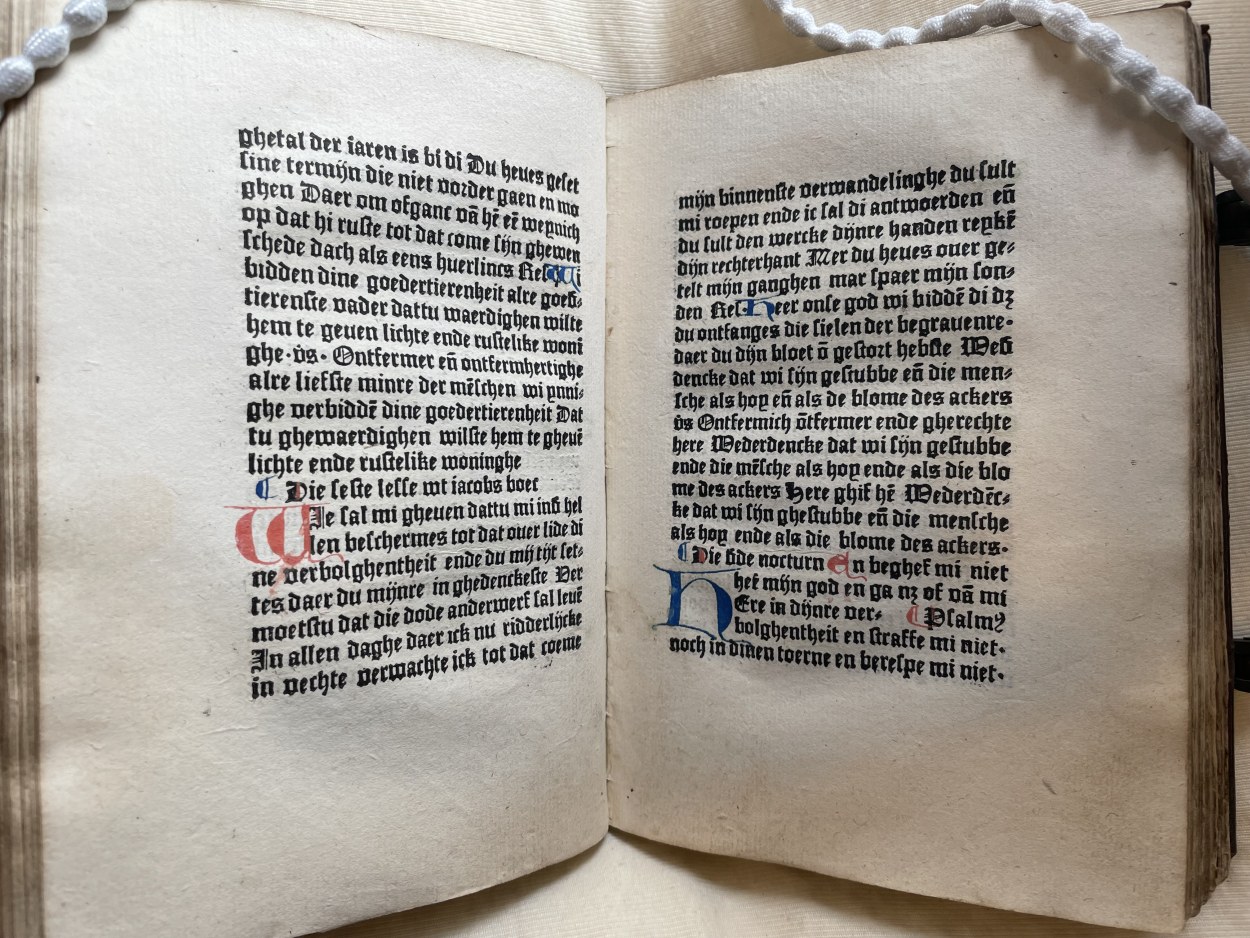 ghetal der iaren is bi di Du heues geset
sine termijn die niet vorder gaen en mo
ghen Daer om ofganc vā hē eē weynich
op dat hi ruste tot dat come sijn ghewen
schede dach als eens huerlincs Res Wi
bidden dine goedertierenheit alre goed⸗
tierenste vader dattu waerdighen wilte
hem te geuen lichte ende rustelike woni
ghe·v̄s· Ontfermer en̄ ontfermhertighe
alre liefste minre der mēschen wi ynni⸗
ghe verbiddē dine goedertierenheit Dat
tu ghewaerdighen wilste hem te gheuē
lichte ende rustelike woninghe
Die seste lesse wt iacobs boec
WIe sal mi gheuen dattu mi ind hel
len beschermes tot dat ouer lide di
ne verbolghentheit ende du mij tijt set⸗
tes daer du mijnre in ghedenckeste Ver
moetstu dat die dode anderwerf sal leuē
In allen daghe daer ick nu ridderlijcke
in vechte verwachte ick tot dat coeme
mijn binnenste verwandelinghe du sult
mi roepen ende ic sal di antwoerden en̄
du sult den wercke dijnre handen reykē
dijn rechterhant Mer du heues ouer ge⸗
telt mijn ganghen mar spaer mijn son⸗
den Res· Heer onse god wi biddē di dꝫ
du ontfanges die sielen der begrauenre·
daer du dijn bloet ō gestort hebste Wed
dencke dat wi sijn gestubbe en̄ die men⸗
sche als hoy en̄ als de blome des ackers
v̄s Ontfermich ōtfermer ende gherechte
here Wederdencke dat wi sijn gestubbe
ende die mēsche als hoy ende als die blo
me des ackers Here ghif hē Wederdēc⸗
ke dat wi sijn ghestubbe en̄ die mensche
als hoy ende als die blome des ackers·
Die dde nocturn En beghef mi niet
HEre in dijnre ver⸗ het mijn god en ga nꝫ of vā mi
Psalmꝰ
bolghentheit en straffe mi niet·
noch in dinen toerne en berespe mi niet·